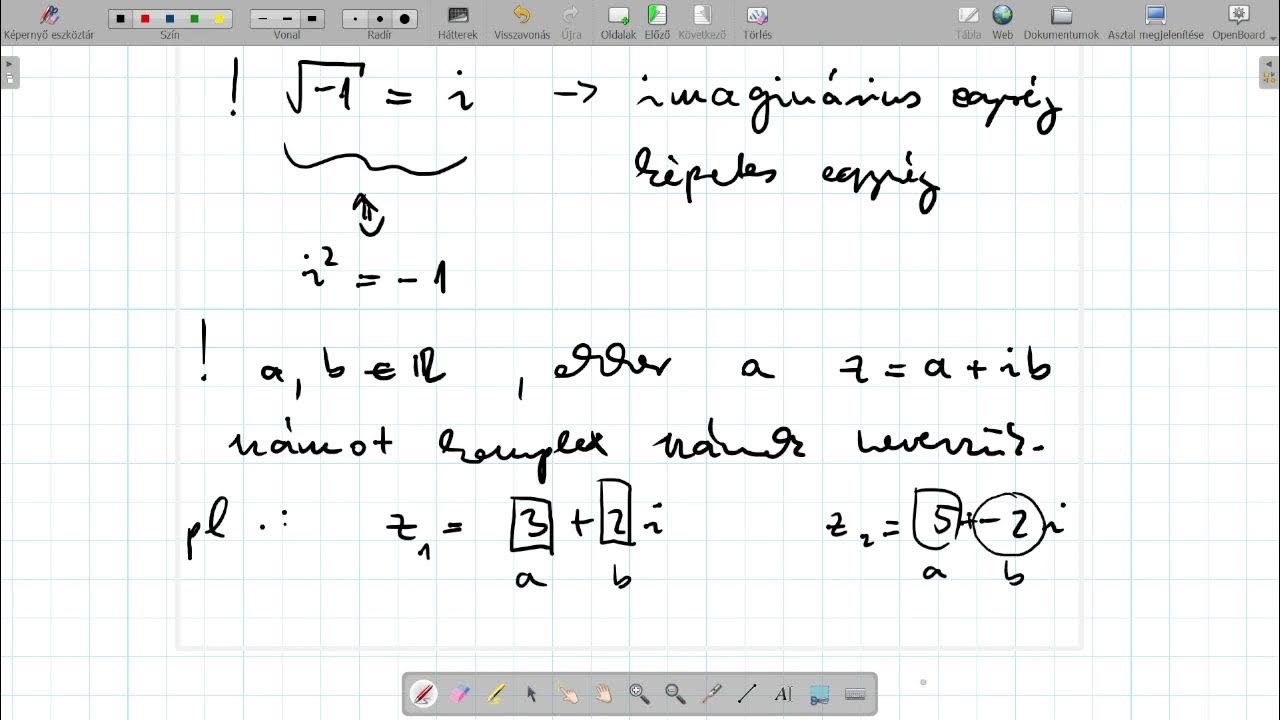 Képernyő eszköztár Szín Vonal Radír Hátterek Visszavonás Újra Oldalak Előző Következő Törlés Tábla Web Dokumentumok Asztal megjelenítése OpenBoard
! √-1 = i → imaginárius egység
képzetes egység
⇕
i² = -1
! a, b ∈ ℝ , ekkor a z = a + ib
számot komplex számnak nevezzük.
pl.: z₁ = 3 + 2 i z₂ = 5 + -2 i
a b a b
AI